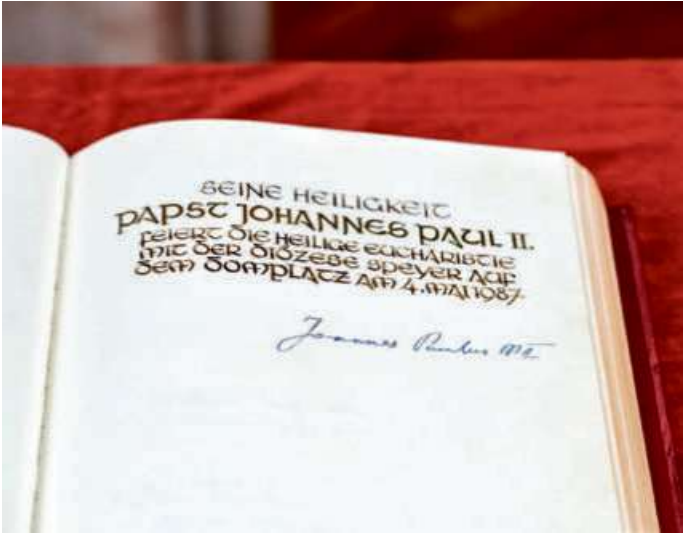 SEINE HEILIGKEIT
PAPST JOHANNES PAUL II.
FEIERT DIE HEILIGE EUCHARISTIE
MIT DER DIÖZESE SPEYER AUF
DEM DOMPLATZ AM 4. MAI 1987.
Joannes Paulus PP II